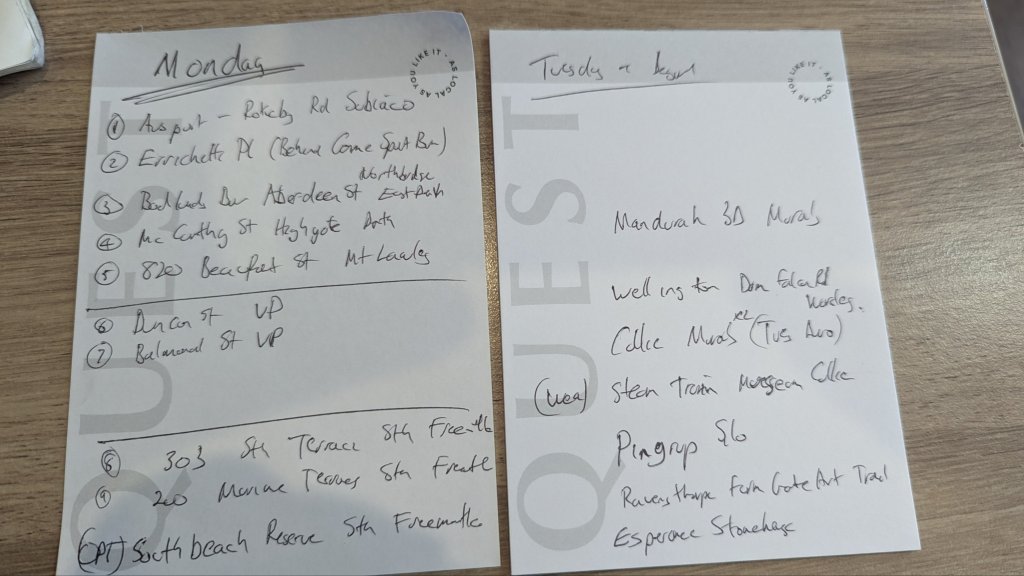 Monday
AS LOCAL AS YOU LIKE IT
① Auspost - Rokeby Rd Subiaco
② Errichetti Pl (Behind Sport Bar)
Northbridge
③ Badlands Bar Aberdeen St East Perth
④ Mc Carthy St Highgate Perth
⑤ 820 Beaufort St Mt Lawley
⑥ Duncan St VP
⑦ Balmoral St VP
⑧ 303 Sth Terrace Sth Freemtle
⑨ 200 Marine Terrace Sth Freatle
(OPT) Southbeach Reserve Sth Freemantle
QUEST
Tuesday
AS LOCAL AS YOU LIKE IT
Mandurah 3D Murals
Wellington Dam
Collie Murals (Tues Avo)
(Wed) Steam Train Collie
Pingrup Silo
Ravensthorpe Farm Gate Art Trail
Esperance Stonehenge
QUEST